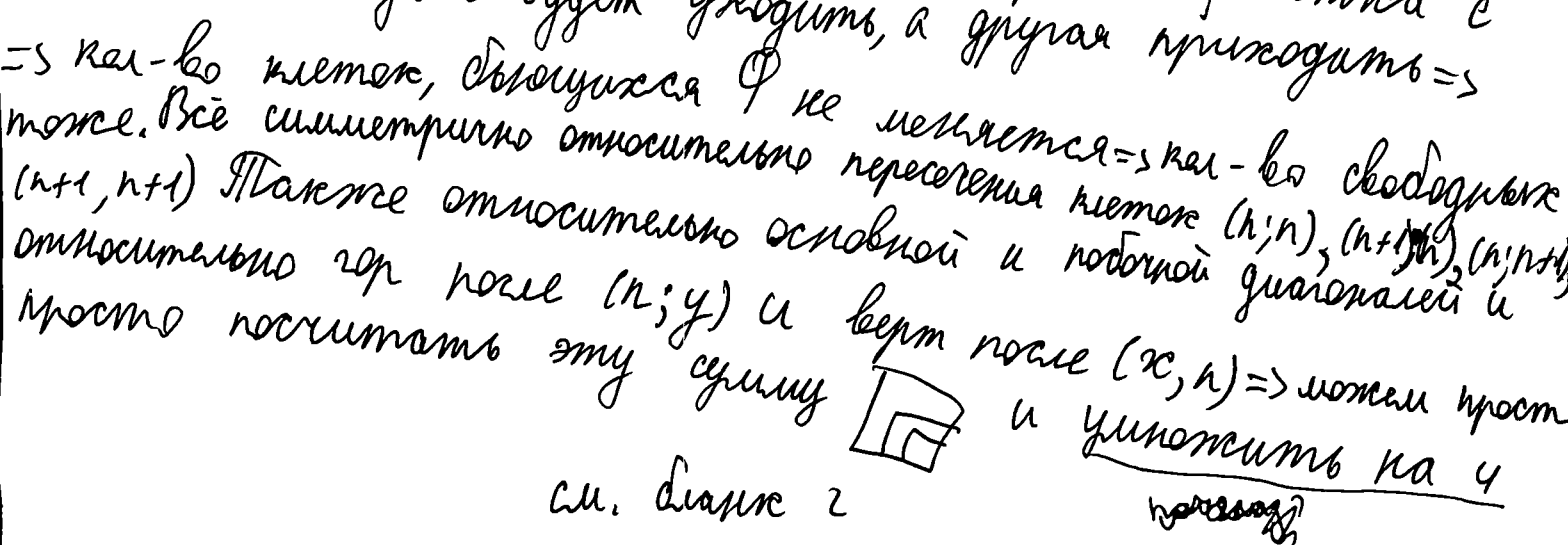 будет уходить, а другая приходить =>
=> кол-во клеток, бьющихся Ф не меняется => кол-во свободных
тоже. Всё симметрично относительно пересечения клеток (n;n), (n+1;n), (n;n+1),
(n+1, n+1) Также относительно основной и побочной диагоналей и
относительно гор после (n;y) и верт после (x,n) => можем прост
просто посчитать эту сумму и умножить на 4
см. бланк 2